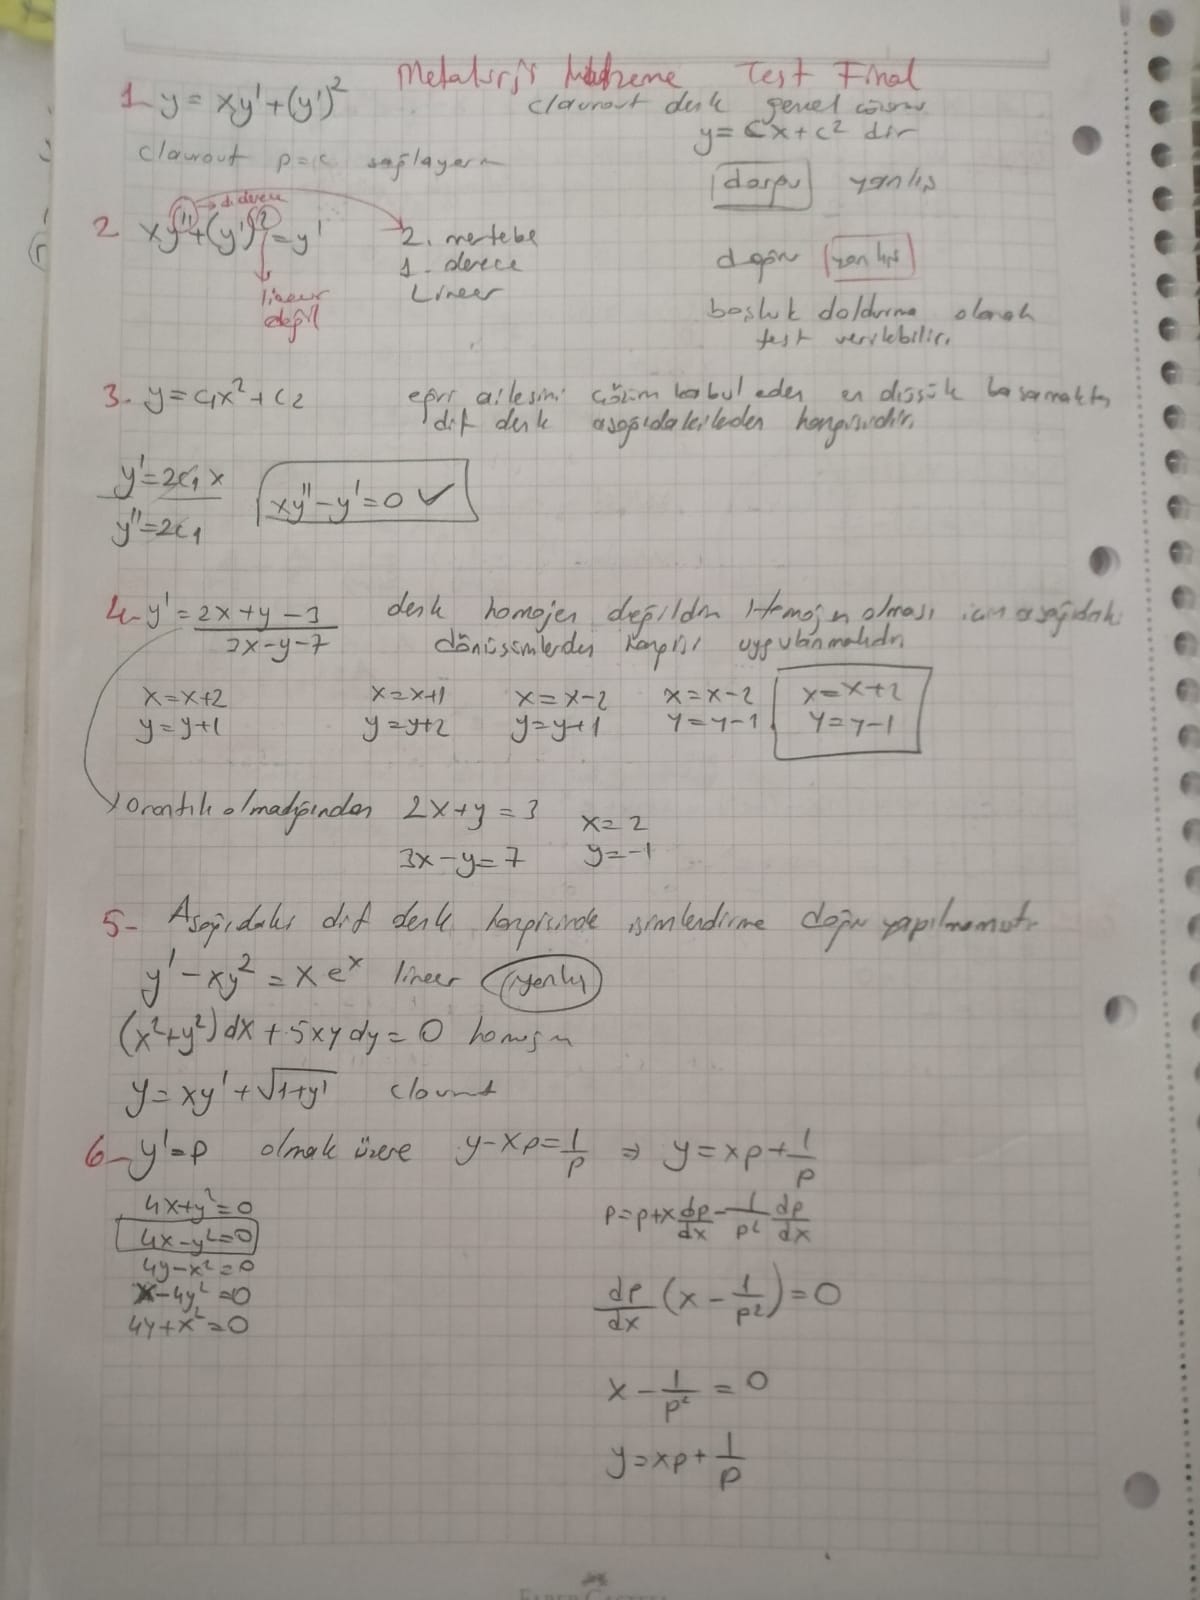 Metalurji Malzeme Test Final
1- y = xy' + (y')²
claurout denk genel çözümü
y = cx + c² dir
claurout p=c sağlayan
doğru yanlış
2 xy'' + (y')² = y'
→ 1. derece
2. mertebe
1. derece
Lineer
lineer değil
doğru yanlış
boşluk doldurma olarak
test verilebilir.
3. y = c₁x² + c₂ eğri ailesini çözüm kabul eden en düşük basamaktan
dif denk aşağıdakilerden hangisidir.
y' = 2c₁x
y'' = 2c₁
xy'' - y' = 0 ✓
4- y' = (2x+y-3)/(3x-y-7) denk homojen değildir Homojen olması için aşağıdaki
dönüşümlerden hangisi uygulanmalıdır
x=x+2 x=x+1 x=x-2 x=x-2 x=x+2
y=y+1 y=y+2 y=y+1 y=y-1 y=y-1
orantılı olmadığından 2x+y=3 x=2
3x-y=7 y=-1
5- Aşağıdaki dif denk hangisinde isimlendirme doğru yapılmamıştır
y' - xy² = xeˣ lineer yanlış
(x²+y²)dx + 5xydy = 0 homojen
y = xy' + √(1+y') claurut
6- y' = p olmak üzere y - xp = 1/p ⇒ y = xp + 1/p
4x+y²=0
4x-y²=0
4y-x²=0
x-4y²=0
4y+x²=0
p = p + x dp/dx - 1/p² dp/dx
dp/dx (x - 1/p²) = 0
x - 1/p² = 0
y = xp + 1/p
FABER-CASTELL